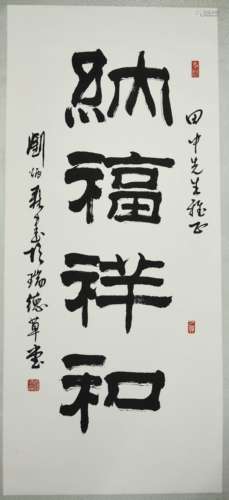 田中先生雅正
納福祥和
劉炳森書於瑞德草堂